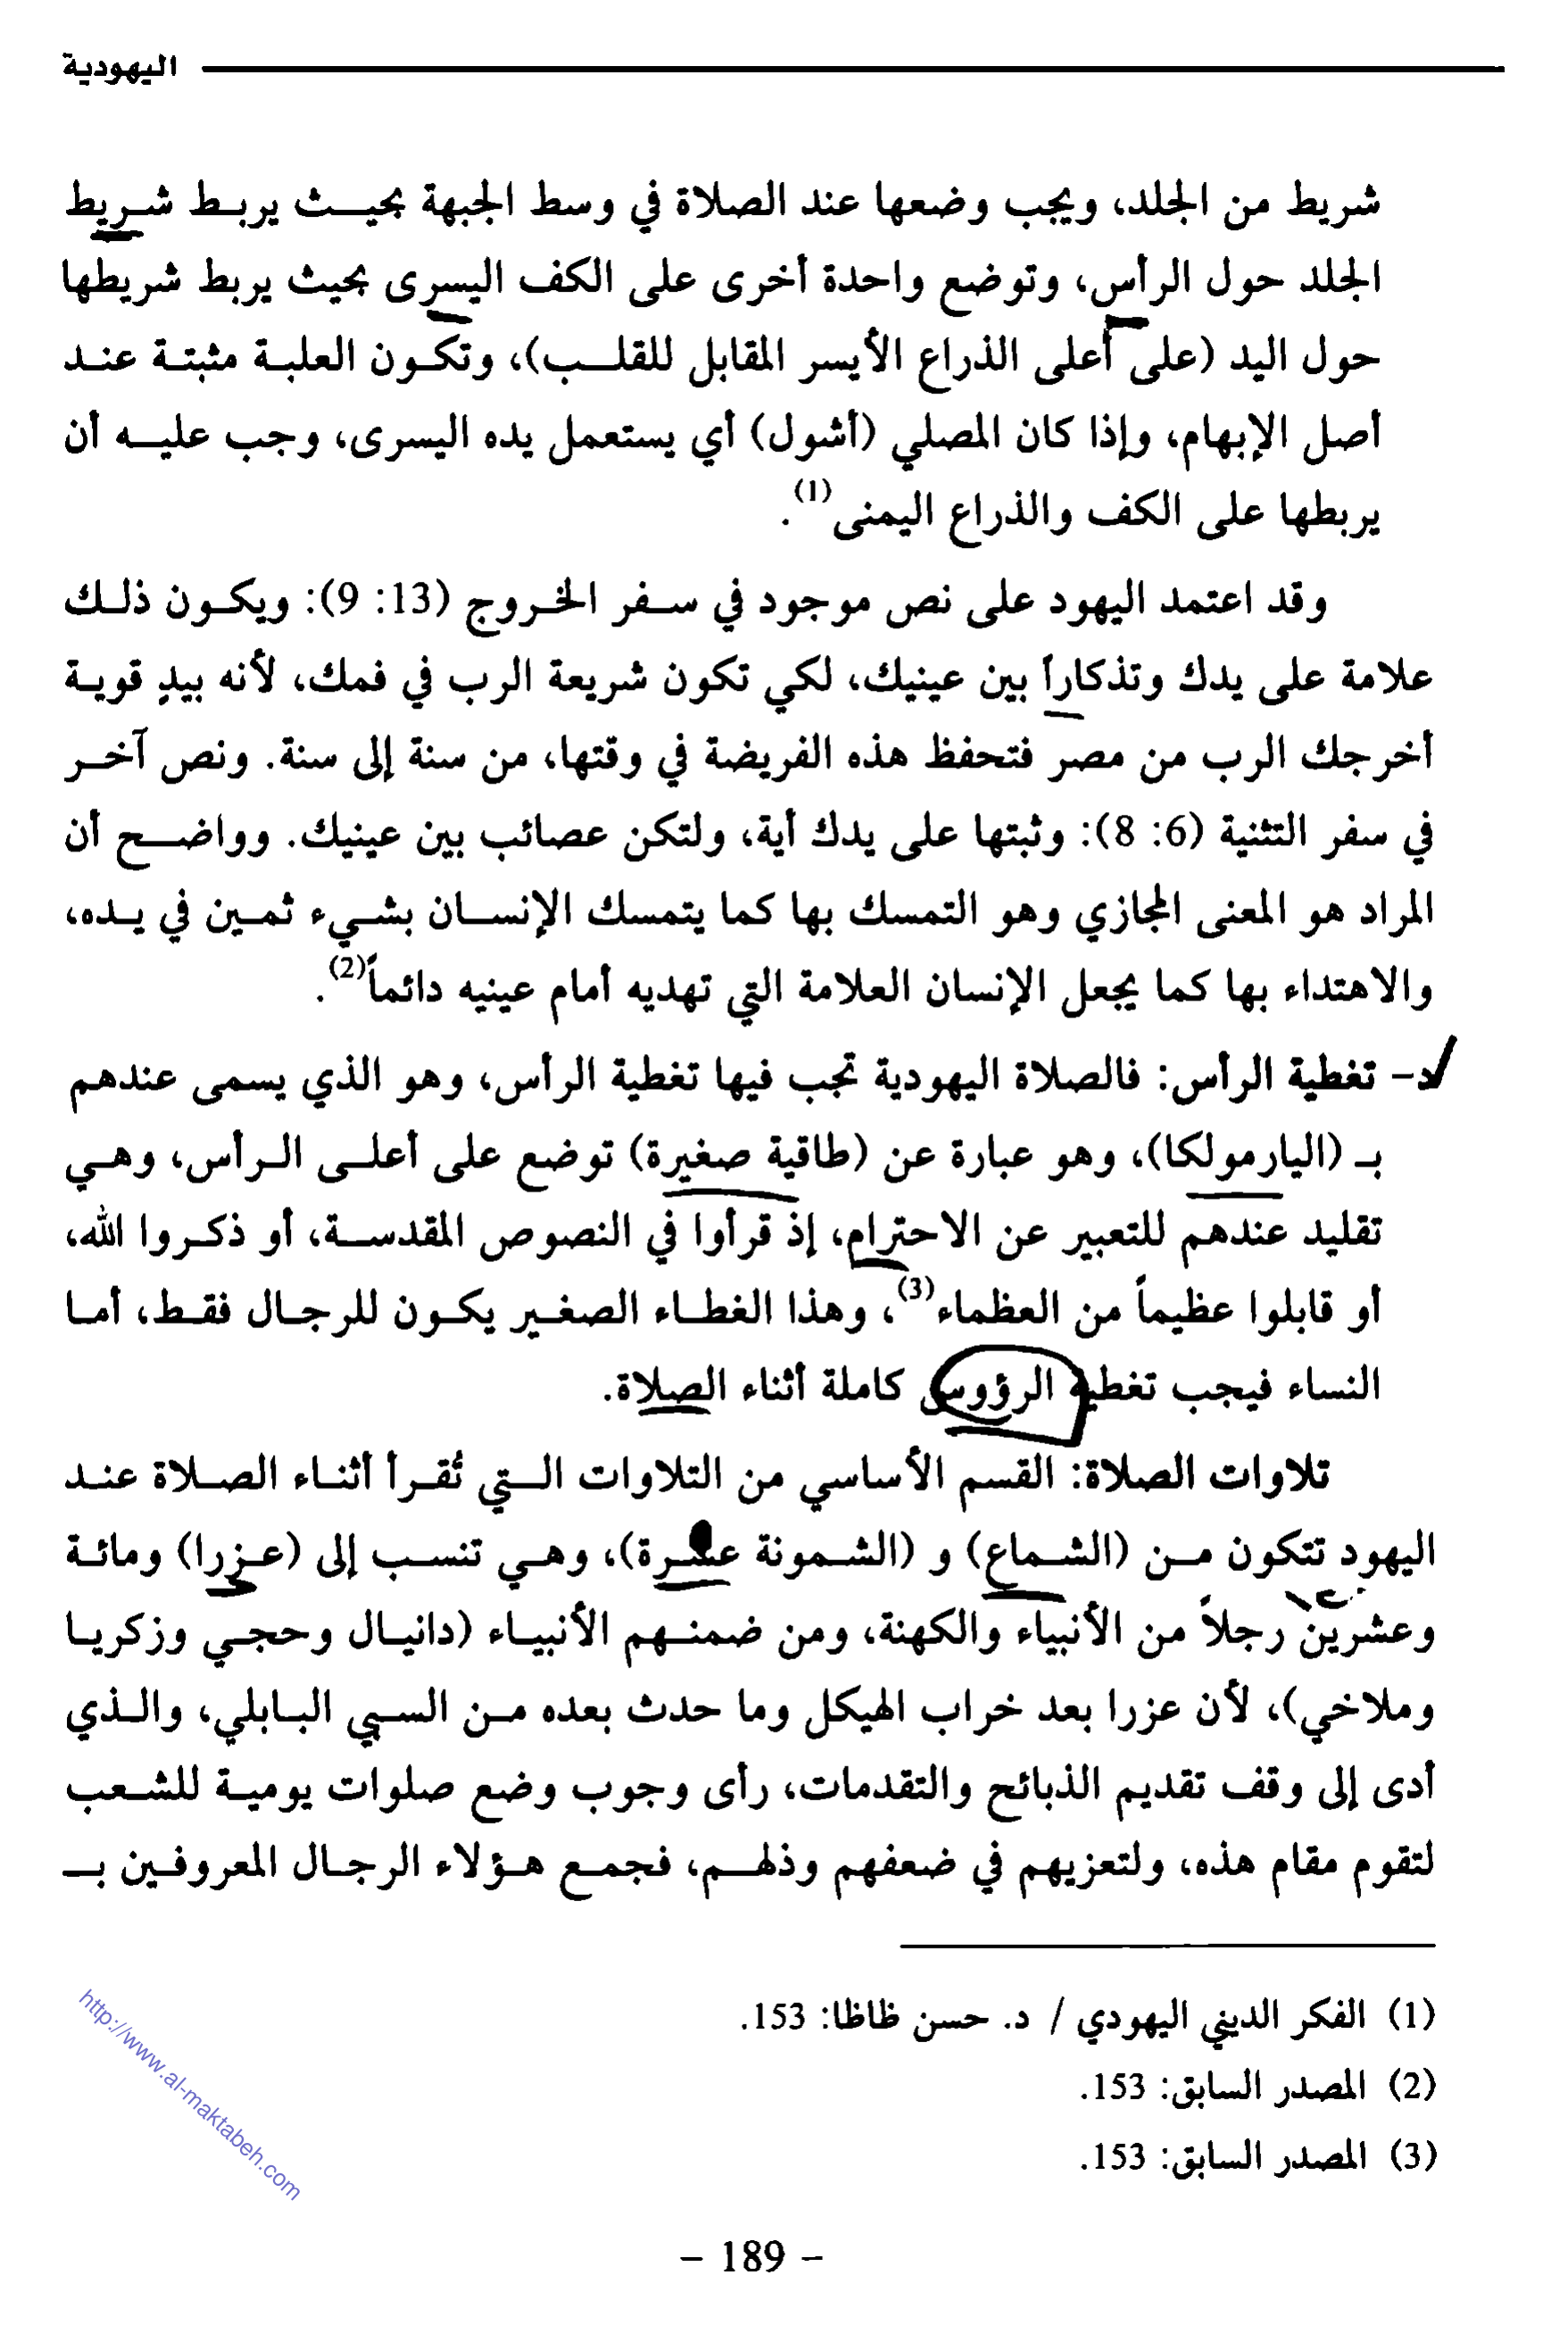 اليهودية
شريط من الجلد، ويجب وضعها عند الصلاة في وسط الجبهة بحيث يربط شريط
الجلد حول الرأس، وتوضع واحدة أخرى على الكف اليسرى بحيث يربط شريطها
حول اليد (على أعلى الذراع الأيسر المقابل للقلب)، وتكون العلبة مثبتة عند
أصل الإبهام، وإذا كان المصلي (أشول) أي يستعمل يده اليسرى، وجب عليه أن
يربطها على الكف والذراع اليمنى(1).
وقد اعتمد اليهود على نص موجود في سفر الخروج (13: 9): ويكون ذلك
علامة على يدك وتذكاراً بين عينيك، لكي تكون شريعة الرب في فمك، لأنه بيدٍ قوية
أخرجك الرب من مصر فتحفظ هذه الفريضة في وقتها، من سنة إلى سنة. ونص آخر
في سفر التثنية (6: 8): وثبتها على يدك أية، ولتكن عصائب بين عينيك. وواضح أن
المراد هو المعنى المجازي وهو التمسك بها كما يتمسك الإنسان بشيء ثمين في يده،
والاهتداء بها كما يجعل الإنسان العلامة التي تهديه أمام عينيه دائماً(2).
د- تغطية الرأس: فالصلاة اليهودية تجب فيها تغطية الرأس، وهو الذي يسمى عندهم
بـ (اليارمولكا)، وهو عبارة عن (طاقية صغيرة) توضع على أعلى الرأس، وهي
تقليد عندهم للتعبير عن الاحترام، إذ قرأوا في النصوص المقدسة، أو ذكروا الله،
أو قابلوا عظيماً من العظماء(3)، وهذا الغطاء الصغير يكون للرجال فقط، أما
النساء فيجب تغطية الرؤوس كاملة أثناء الصلاة.
تلاوات الصلاة: القسم الأساسي من التلاوات التي تُقرأ أثناء الصلاة عند
اليهود تتكون من (الشماع) و (الشمونة عشرة)، وهي تنسب إلى (عزرا) ومائة
وعشرين رجلاً من الأنبياء والكهنة، ومن ضمنهم الأنبياء (دانيال وحجي وزكريا
وملاخي)، لأن عزرا بعد خراب الهيكل وما حدث بعده من السبي البابلي، والذي
أدى إلى وقف تقديم الذبائح والتقدمات، رأى وجوب وضع صلوات يومية للشعب
لتقوم مقام هذه، ولتعزيهم في ضعفهم وذلهم، فجمع هؤلاء الرجال المعروفين بـ
(1) الفكر الديني اليهودي / د. حسن ظاظا: 153.
(2) المصدر السابق: 153.
(3) المصدر السابق: 153.
http://www.al-maktabeh.com
- 189 -